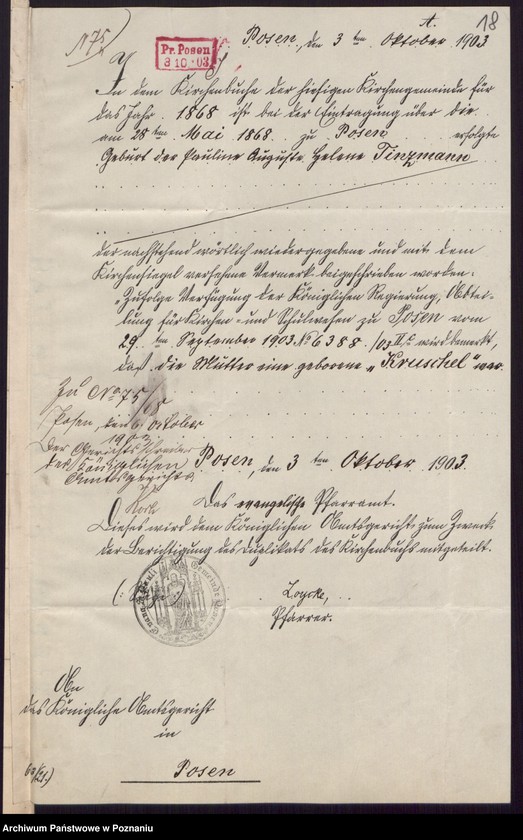 A.
18
N 75
Posen, den 3ten Oktober 1903
Pr. Posen
8 10. 03
In dem Kirchenbuche der hiesigen Kirchengemeinde für
das Jahr 1868 ist bei der Eintragung über die
am 28ten Mai 1868 zu Posen erfolgte
Geburt der Pauline Auguste Helene Tinzmann
der nachstehend wörtlich wiedergegebene und mit dem
Kirchensiegel versehene Vermerk beigeschrieben worden:
"Zufolge Verfügung der Königlichen Regierung, Abtei-
lung für Kirchen- und Schulwesen zu Posen vom
29. ten September 1903 No 6388/03 II wird bemerkt,
daß die Mutter eine geborene "Kruschel" war.
Zu No 75/68
Posen, den 6. Oktober
1903
Der Gerichtsschreiber
des Königlichen
Amtsgerichts
Posen, den 3ten Oktober 1903.
Das evangelische Pfarramt.
Dieses wird dem Königlichen Amtsgericht zum Zweck
der Berichtigung des Duplikats des Kirchenbuchs mitgeteilt.
Loycke,
Pfarrer.
An
das Königliche Amtsgericht
in
Posen
Archiwum Państwowe w Poznaniu